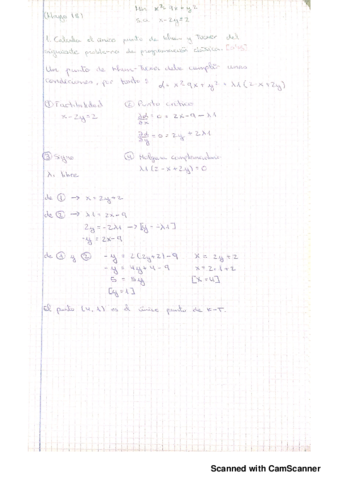 Min x² - 9x + y²
s.a. x - 2y = 2
1. Calcula el único punto de Khun y Tucker del
siguiente problema de programación clásica.
Un punto de Khun-Tucker debe cumplir unas
condiciones, por tanto: L = x² - 9x + y² + λ1(2 - x + 2y)
① Factibilidad
x - 2y = 2
② Punto crítico
= 0 = 2x - 9 - λ1
= 0 = 2y + 2λ1
③ Signo
λ1 libre
④ Holgura complementaria
λ1(2 - x + 2y) = 0
de ① → x = 2y + 2
de ② → λ1 = 2x - 9
2y = -2λ1 → [y = -λ1]
-y = 2x - 9
de ① y ② - y = 2(2y+2) - 9 x = 2y + 2
- y = 4y + 4 - 9 x = 2·1 + 2
5 = 5y [x = 4]
[y = 1]
El punto (4, 1) es el único punto de K-T.
Scanned with CamScanner